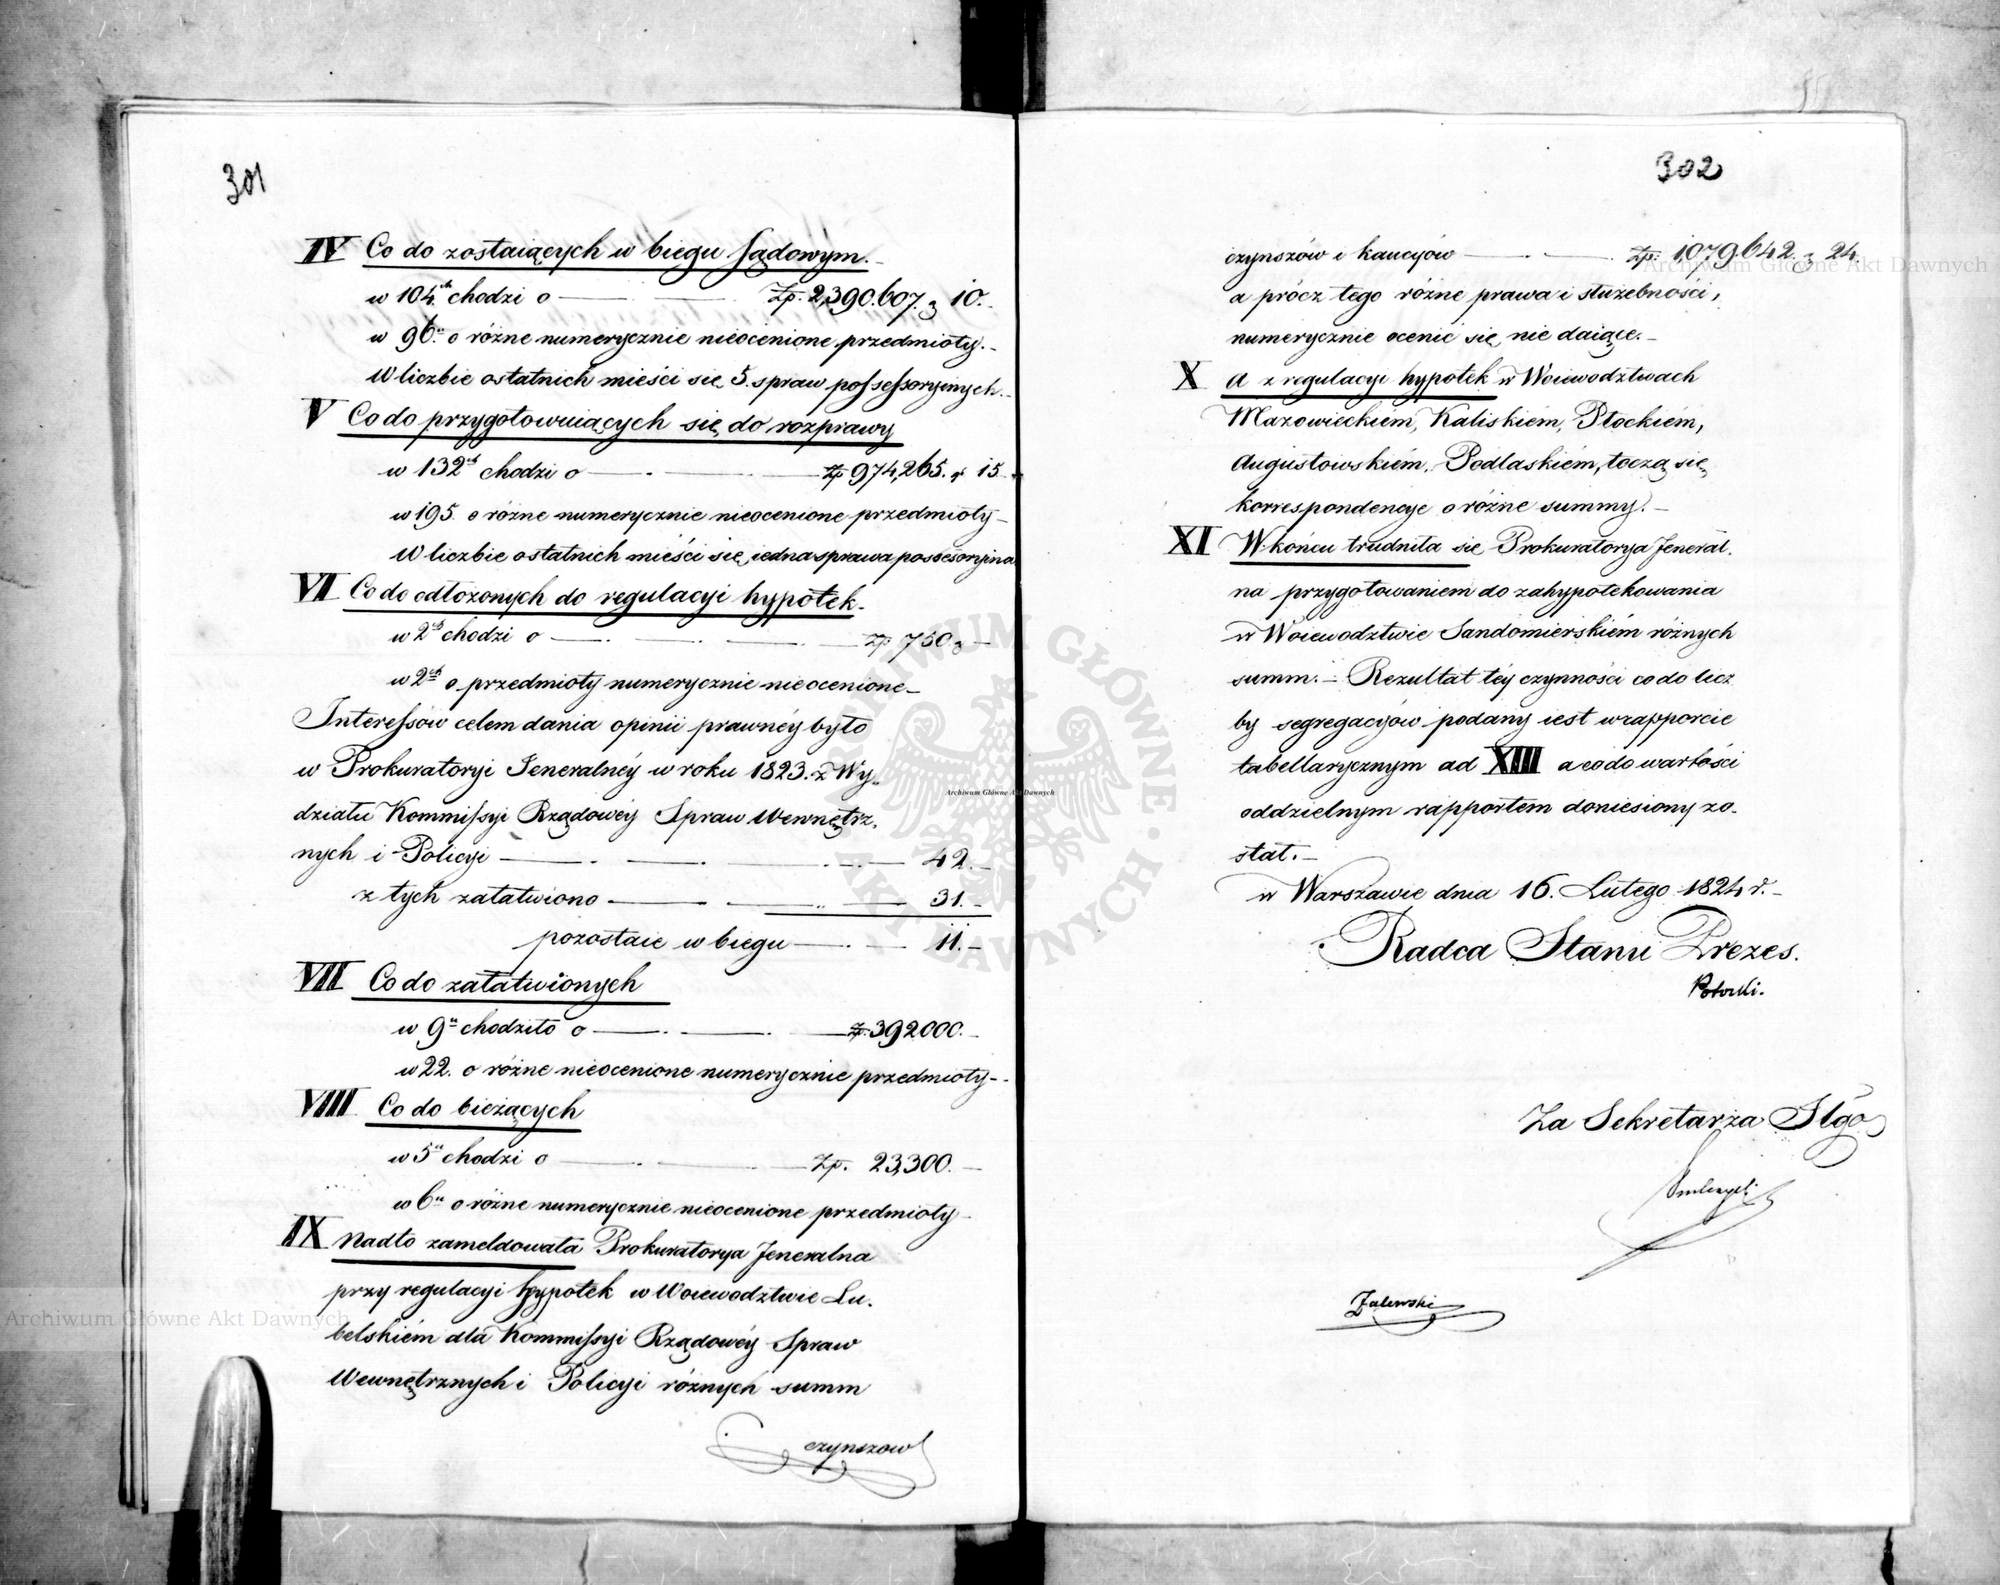 301
IV Co do zostaiących w biegu sądowym.
w 104ch chodzi o Zp. 2,390.607. g 10.
w 96u o różne numerycznie nieocenione przedmioty.
W liczbie ostatnich mieści się 5. spraw possessoryinych.
V Co do przygotowuiących się do rozprawy
w 132ch chodzi o Zp 974,265. g 15
w 195. o różne numerycznie nieocenione przedmioty
W liczbie ostatnich mieści się iedna sprawa possesoryina
VI Co do odłożonych do regulacyi hypotek.
w 2ch chodzi o Zp 750 g
w 2ch o przedmioty numerycznie nieocenione
Interessów celem dania opinii prawnéy było
w Prokuratoryi Jeneralnéy w roku 1823. z Wy-
działu Kommissyi Rządowéy Spraw Wewnętrz-
nych i Policyi 42.
z tych załatwiono 31.
pozostaie w biegu 11.
VII Co do załatwionych
w 9u chodziło o Zp. 392000.
w 22. o różne nieocenione numerycznie przedmioty
VIII Co do bieżących
w 5u chodzi o Zp. 23,300.
w 6u o różne numerycznie nieocenione przedmioty
IX Nadto zameldowała Prokuratorya Jeneralna
przy regulacyi hypotek w Woiewodztwie Lu-
belskiém dla Kommissyi Rządowéy Spraw
Wewnętrznych i Policyi różnych summ
czynszow
302
czynszów i kaucyów Zp. 1,079.642. g 24.
a prócz tego różne prawa i służebności,
numerycznie ocenić się nie daiące.
X A z regulacyi hypotek w Woiewodztwach
Mazowieckiém, Kaliskiém, Płockiém,
Augustowskiém, Podlaskiém, toczą się
korrespondencye o różne summy.
XI W końcu trudniła się Prokuratorya Jeneral-
na przygotowaniem do zahypotekowania
w Woiewodztwie Sandomierskiém różnych
summ. Rezultat téy czynności co do licz
by segregacyów podany iest w rapporcie
tabellarycznym ad XIII a co do wartości
oddzielnym rapportem doniesiony zo-
stał.
w Warszawie dnia 16. Lutego 1824 r.
Radca Stanu Prezes.
Potocki.
Za Sekretarza Jlgo
Zalewski
Archiwum Główne Akt Dawnych
Archiwum Główne Akt Dawnych
Archiwum Główne Akt Dawnych
ARCHIWUM GŁÓWNE AKT DAWNYCH